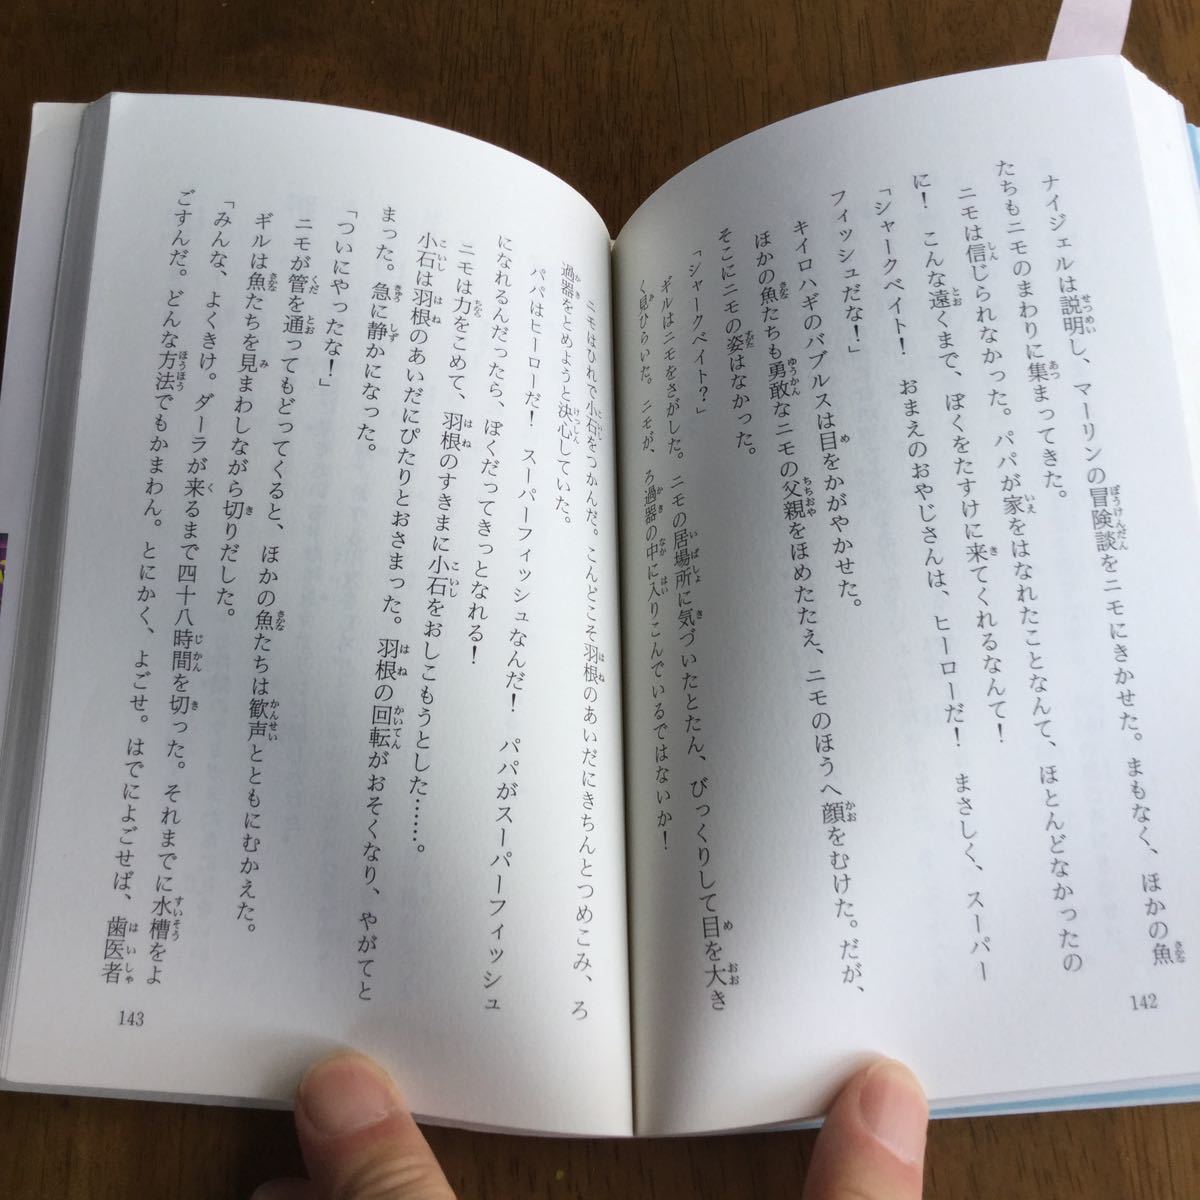 ナイジェルは説明し、マーリンの冒険談をニモにきかせた。まもなく、ほかの魚
たちもニモのまわりに集まってきた。
ニモは信じられなかった。パパが家をはなれたことなんて、ほとんどなかったの
に！　こんな遠くまで、ぼくをたすけに来てくれるなんて！
「シャークベイト！　おまえのおやじさんは、ヒーローだ！　まさしく、スーパー
フィッシュだな！」
キイロハギのバブルスは目をかがやかせた。
ほかの魚たちも勇敢なニモの父親をほめたたえ、ニモのほうへ顔をむけた。だが、
そこにニモの姿はなかった。
「シャークベイト？」
ギルはニモをさがした。ニモの居場所に気づいたとたん、びっくりして目を大き
く見ひらいた。ニモが、ろ過器の中に入りこんでいるではないか！
142
ニモはひれで小石をつかんだ。こんどこそ羽根のあいだにきちんとつめこみ、ろ
過器をとめようと決心していた。
パパはヒーローだ！　スーパーフィッシュなんだ！　パパがスーパーフィッシュ
になれるんだったら、ぼくだってきっとなれる！
ニモは力をこめて、羽根のすきまに小石をおしこもうとした……。
小石は羽根のあいだにぴたりとおさまった。羽根の回転がおそくなり、やがてと
まった。急に静かになった。
「ついにやったな！」
ニモが管を通ってもどってくると、ほかの魚たちは歓声とともにむかえた。
ギルは魚たちを見まわしながら切りだした。
「みんな、よくきけ。ダーラが来るまで四十八時間を切った。それまでに水槽をよ
ごすんだ。どんな方法でもかまわん。とにかく、よごせ。はでによごせば、歯医者
143